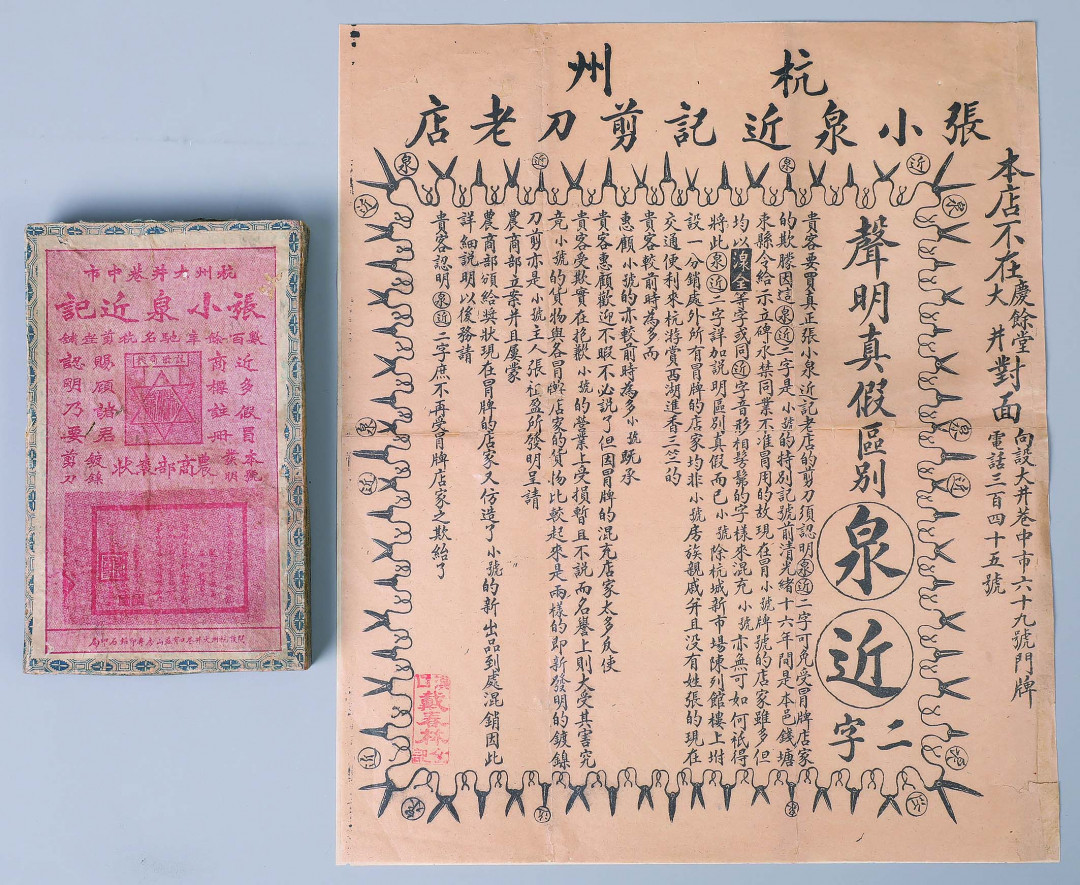 杭州
張小泉近記剪刀老店
本店不在慶餘堂對面
大井
向設大井巷中市六十九號門牌
電話三百四十五號
聲明真假區別泉近二字
貴客要買真正張小泉近記老店的剪刀須認明泉近二字可免受冒牌店家
的欺朦因這泉近二字是小號的特別記號前清光緒十六年間是本邑錢塘
束縣令給示立碑永禁同業不准冒用的故現在冒小號牌號的店家雖多但
均以湶全等字或同近字音形相髣髴的字樣來混充小號亦無可如何祇得
將此泉近二字詳加說明區別真假而已小號除杭城新市場陳列館樓上坿
設一分銷處外所有冒牌的店家均非小號房族親戚并且没有姓張的現在
交通便利來杭將賞西湖進香三竺的
貴客較前時為多而
惠顧小號的亦較前時為多小號既承
貴客惠顧歡迎不暇不必說了但因冒牌的混充店家太多反使
貴客受欺實在抱歉小號的營業上受損暫且不說而名譽上則大受其害究
竟小號的貨物與各冒牌店家的貨物比較起來是兩樣的即新發明的鍍鎳
刀剪亦是小號主人張祖盈所發明呈請
農商部立案并且屢蒙
農商部頒給奬狀現在冒牌的店家又仿造了小號的新出品到處混銷因此
詳細說明以後務請
貴客認明泉近二字庶不再受冒牌店家之欺紿了
戴春林
杭州大井巷中市
張小泉近記
數百餘年馳名杭剪並鋪
近多假冒
商標註冊
賜顧諸君
認明乃要
本號發明
鍍鎳剪刀
農商部奬狀